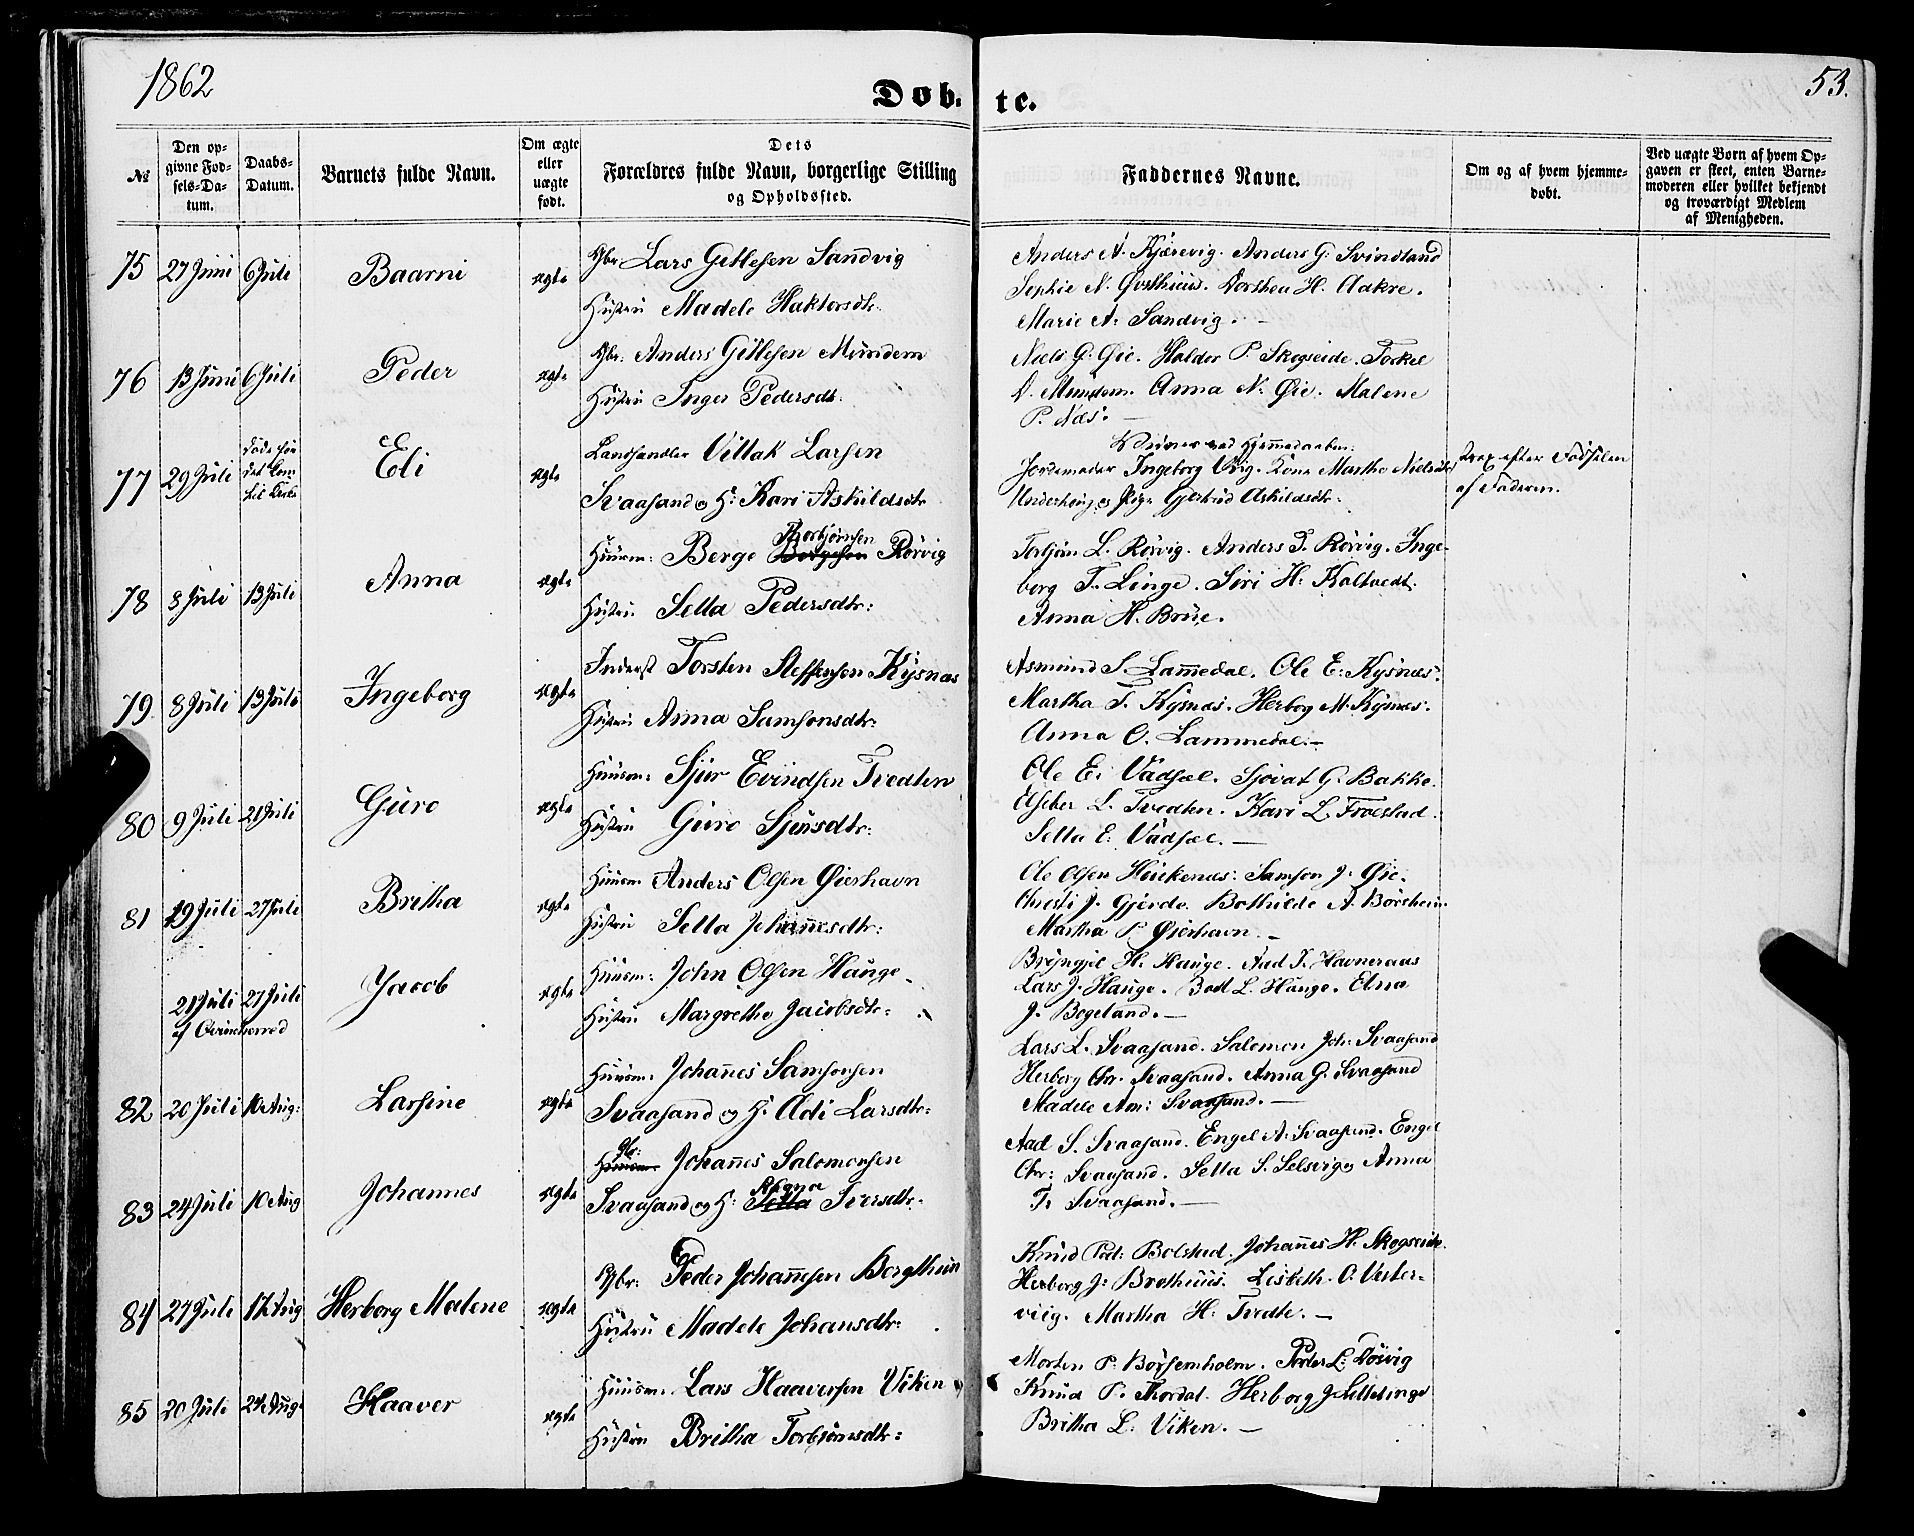 1862
Døb-
te.
53.
№
Den op-
givne Fød-
sels-Da-
tum.
Daabs-
Datum.
Barnets fulde Navn.
Om ægte
eller
uægte
født.
Dets
Forældres fulde Navn, borgerlige Stilling
og Opholdssted.
Faddernes Navne.
Om og af hvem hjemme-
døbt.
Ved uægte Børn af hvem Op-
gaven er skeet, enten Barne-
moderen eller hvilket bekjendt
og troværdigt Medlem
af Menigheden.
75 27 Juni 6 Juli Baarni ægte Gbr. Lars Gitlesen Sandvig
Hustru Madele Haktorsdtr.
Anders A. Kjærevig. Anders G. Svindland
Sophie N. Dorthea H. Aakre.
Marie A. Sandvig. —
76 13 Juni 6 Juli Peder ægte Gbr: Anders Gitlesen Mundem
Hustru Inger Pedersdt.
Niels G. Øie. Haldor P. Skogseide. Torkel
Mundem. Anna N. Øie. Malene
P. Næs. —
77 29 Juli døde før det kom til Kirke Eli ægte Landhandler Villak Larsen
Svaasand og H: Kari Askildsdtr
ved Hjemmedaaben:
Jordemoder Ingeborg Vig. Kone Martha Nielsdtr
Underhoug og Pige Gjertrud Askildsdtr.
strax efter Fødselen
af Faderen.
78 8 Juli 13 Juli Anna ægte Huusm: Berge Thorbjørnsen Rørvig
Hustru Sella Pedersdtr:
Torbjøn L. Rørvig. Anders T. Rørvig. Inge-
borg T. Linge. Siri H. Kaltvedt.
Anna H. Brue.
79 8 Juli 13 Juli Ingeborg ægte Inderst Torsten Steffensen Kysnæs
Hustru Anna Samsonsdtr:
Asmund S. Lammedal. Ole E. Kysnæs.
Martha T. Kysnæs. Herborg M. Kysnæs.
Anna O. Lammedal. —
80 9 Juli 21 Juli Guro ægte Huusm: Sjur Evindsen Tvedten
Hustru Guro Sjursdtr:
Ole E. Vadsæl. Sjovat G. Bakke.
Elsebe L. Tvedten. Kari L. Froestad.
Sella E. Vadsæl. —
81 19 Juli 27 Juli Britha ægte Huusm Anders Olsen Øierhavn
Hustru Sella Johannesdtr:
Ole Olsen Huckenæs. Samson J. Øie.
Christi J. Gjerde. Bothilde A. Børsheim.
Martha P. Øierhavn. —
21 Juli 27 Juli Jacob ægte Huusm: John Olsen Hauge
af Qvinnherred
Hustru Margrethe Jacobsdtr.
Bryngjel H. Hauge. Aad T. Havneraas
Lars J. Hauge. L. Hauge. Elna
J. Bogeland. —
82 20 Juli 10 Aug: Larsine ægte Huusm. Johannes Samsonsen
Svaasand og H: Adi Larsdtr:
Lars L. Svaasand. Salomon Joh. Svaasand
Herborg Chr. Svaasand. Anna G. Svaasand
Madele Am: Svaasand. —
83 24 Juli 10 Aug Johannes ægte Gbr: Johannes Salomonsen
Svaasand og H: Ragna Iversdtr.
Aad S. Svaasand. Engel A. Svaasand. Engel
Chr: Svaasand. Sella S. Selsvig og Anna
T. Svaasand. —
84 27 Juli 17 Aug Herborg Malene ægte Gbr: Peder Johannesen Bergthun
Hustru Madele Johansdtr:
Knud Ped: Bolstad. Johannes H. Skogseide.
Herborg J. Brothuus. Lisbeth O. Vester-
viig. Martha H. Tvedte. —
85 20 Juli 24 Aug Haaver ægte Huusm. Lars Haaversen Viken
Hustru Britha Torbjørnsdtr:
Morten P. Børsemholm. Peder L. Røsvig
Knud P. Thordal. Herborg J. Lillelinge
Britha L. Viken. —